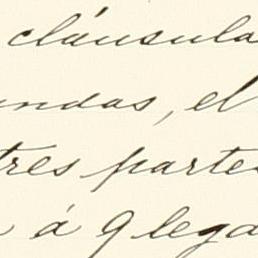 cláusula
undas, el
tres partes
á 9 lega